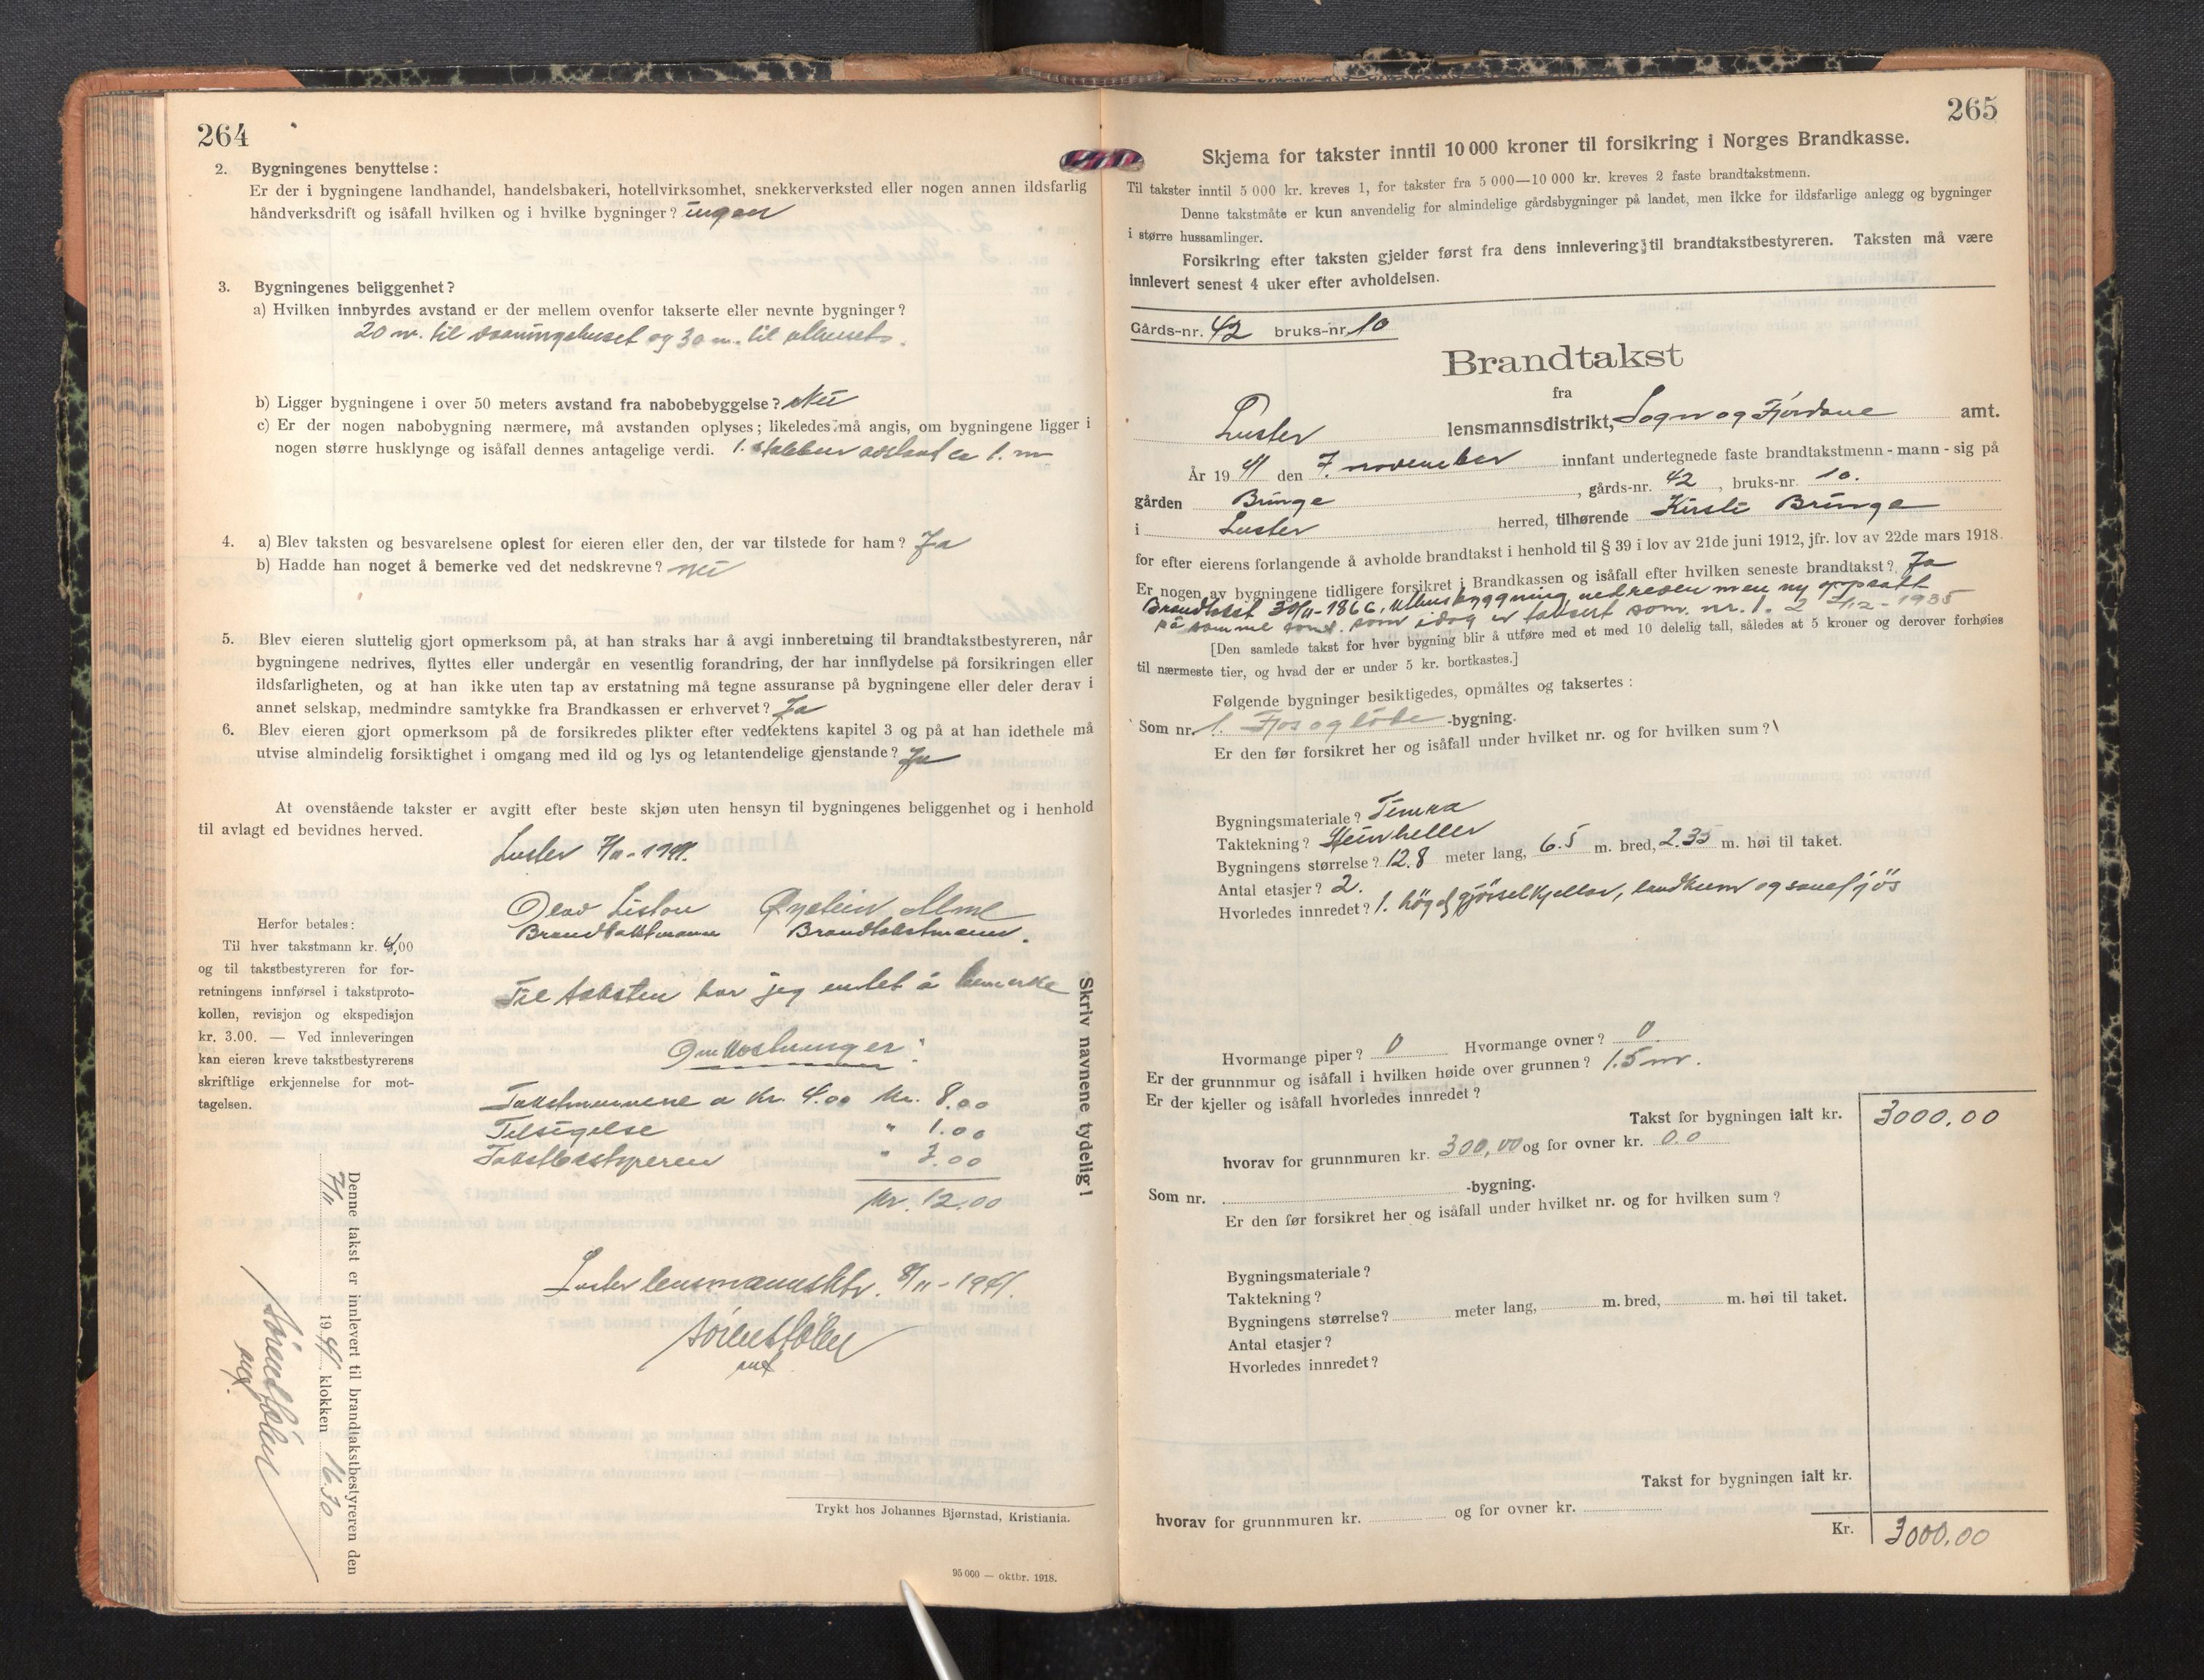 264
2. Bygningenes benyttelse :
Er der i bygningene landhandel, handelsbakeri, hotellvirksomhet, snekkerverksted eller nogen annen ildsfarlig
håndverksdrift og isåfall hvilken og i hvilke bygninger? ingen
3. Bygningenes beliggenhet?
a) Hvilken innbyrdes avstand er der mellem ovenfor takserte eller nevnte bygninger?
20 m. til vaaningshuset og 30 m. til uthuset.
b) Ligger bygningene i over 50 meters avstand fra nabobebyggelse? Nei
c) Er der nogen nabobygning nærmere, må avstanden oplyses; likeledes må angis, om bygningene ligger i
nogen større husklynge og isåfall dennes antagelige verdi. 1. stabbur avstand ca 1. m
4. a) Blev taksten og besvarelsene oplest for eieren eller den, der var tilstede for ham? Ja
b) Hadde han noget å bemerke ved det nedskrevne? Nei
5. Blev eieren sluttelig gjort opmerksom på, at han straks har å avgi innberetning til brandtakstbestyreren, når
bygningene nedrives, flyttes eller undergår en vesentlig forandring, der har innflydelse på forsikringen eller
ildsfarligheten, og at han ikke uten tap av erstatning må tegne assuranse på bygningene eller deler derav i
annet selskap, medmindre samtykke fra Brandkassen er erhvervet? Ja
6. Blev eieren gjort opmerksom på de forsikredes plikter efter vedtektens kapitel 3 og på at han idethele må
utvise almindelig forsiktighet i omgang med ild og lys og letantendelige gjenstande? Ja
At ovenstående takster er avgitt efter beste skjøn uten hensyn til bygningenes beliggenhet og i henhold
til avlagt ed bevidnes herved.
Luster 7/11-1941.
Olav Øystein
Brandtakstmann Brandtakstmann.
Herfor betales:
Til hver takstmann kr. 4,00
og til takstbestyreren for for-
retningens innførsel i takstproto-
kollen, revisjon og ekspedisjon
kr. 3.00. — Ved innleveringen
kan eieren kreve takstbestyrerens
skriftlige erkjennelse for mot-
tagelsen.
Til taksten har jeg intet å bemerke
Omkostninger:
Takstmennene a kr. 4.00 kr. 8.00
Tilsigelse " 1.00
Takstbestyreren " 3.00
kr. 12.00
Luster lensmannsktr. 8/11-1941.
Skriv navnene tydelig!
Denne takst er innlevert til brandtakstbestyreren den
7/11 1941 klokken 16.30
Trykt hos Johannes Bjørnstad, Kristiania.
95 000 — oktbr. 1918.
265
Skjema for takster inntil 10 000 kroner til forsikring i Norges Brandkasse.
Til takster inntil 5 000 kr. kreves 1, for takster fra 5 000—10 000 kr. kreves 2 faste brandtakstmenn.
Denne takstmåte er kun anvendelig for almindelige gårdsbygninger på landet, men ikke for ildsfarlige anlegg og bygninger
i større hussamlinger.
Forsikring efter taksten gjelder først fra dens innlevering til brandtakstbestyreren. Taksten må være
innlevert senest 4 uker efter avholdelsen.
Gårds-nr. 42 bruks-nr. 10
Brandtakst
fra
Luster lensmannsdistrikt, Sogn og Fjordane amt.
År 1941 den 7. november innfant undertegnede faste brandtakstmenn - mann - sig på
gården Bringe, gårds-nr. 42, bruks-nr. 10.
i Luster herred, tilhørende Kirsti Bringe
for efter eierens forlangende å avholde brandtakst i henhold til § 39 i lov av 21de juni 1912, jfr. lov av 22de mars 1918.
Er nogen av bygningene tidligere forsikret i Brandkassen og isåfall efter hvilken seneste brandtakst? Ja
Brandtakst 30/11-1866, uthusbyggning nedreven men ny oppsatt
på samme som idag er taksert som nr. 1. 2 7/12-1935
[Den samlede takst for hver bygning blir å utføre med et med 10 delelig tall, således at 5 kroner og derover forhøies
til nærmeste tier, og hvad der er under 5 kr. bortkastes.]
Følgende bygninger besiktigedes, opmåltes og taksertes :
Som nr. 1. Fjos og løde -bygning.
Er den før forsikret her og isåfall under hvilket nr. og for hvilken sum?
Bygningsmateriale? Timra
Taktekning? Steinheller
Bygningens størrelse? 12.8 meter lang, 6.5 m. bred, 2.35 m. høi til taket.
Antal etasjer? 2.
Hvorledes innredet? 1. høg gjørselkjellar, landkum og sauefjøs
Hvormange piper? 0 Hvormange ovner? 0
Er der grunnmur og isåfall i hvilken høide over grunnen? 1.5 m.
Er der kjeller og isåfall hvorledes innredet?
Takst for bygningen ialt kr. 3000,00
hvorav for grunnmuren kr. 300,00 og for ovner kr. 0.0
Som nr. -bygning.
Er den før forsikret her og isåfall under hvilket nr. og for hvilken sum?
Bygningsmateriale?
Taktekning?
Bygningens størrelse? meter lang, m. bred, m. høi til taket.
Antal etasjer?
Hvorledes innredet?
Takst for bygningen ialt kr.
hvorav for grunnmuren kr. og for ovner kr.
Kr. 3000,00